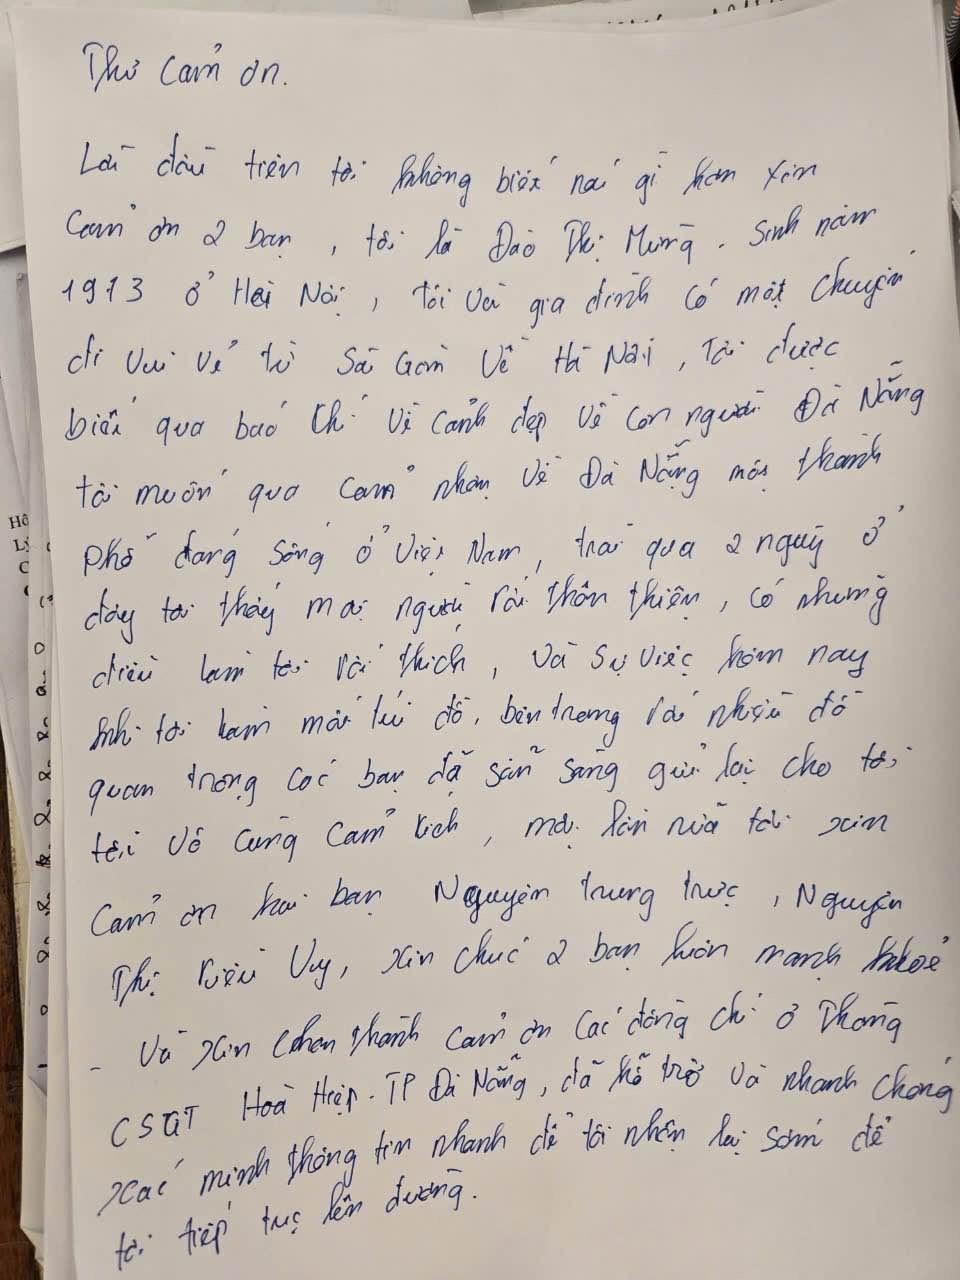 Thư Cảm ơn.
Lời đầu tiên tôi không biết nói gì hơn xin
Cảm ơn 2 bạn, tôi là Đào Thị Mừng. Sinh năm
1973 ở Hà Nội, tôi và gia đình có một chuyến
đi vui vẻ từ Sài Gòn Về Hà Nội, Tôi được
biết qua báo chí về cảnh đẹp về con người Đà Nẵng
tôi muốn qua cảm nhận về Đà Nẵng một thành
phố đáng sống ở Việt Nam, trải qua 2 ngày ở
đây tôi thấy mọi người rất thân thiện, có những
điều làm tôi rất thích, và sự việc hôm nay
khi tôi làm mất túi đồ, bên trong rất nhiều đồ
quan trọng các bạn đã sẵn sàng gửi lại cho tôi
tôi vô cùng cảm kích, một lần nữa tôi xin
Cảm ơn hai bạn Nguyễn trung trực, Nguyễn
Thị Kiều Vy, xin chúc 2 bạn luôn mạnh khoẻ
- Và xin chân thành cảm ơn các đồng chí ở Phòng
CSGT Hoà Hiệp. TP Đà Nẵng, đã hỗ trợ và nhanh chóng
xác minh thông tin nhanh để tôi nhận lại sớm để
tôi tiếp tục lên đường.